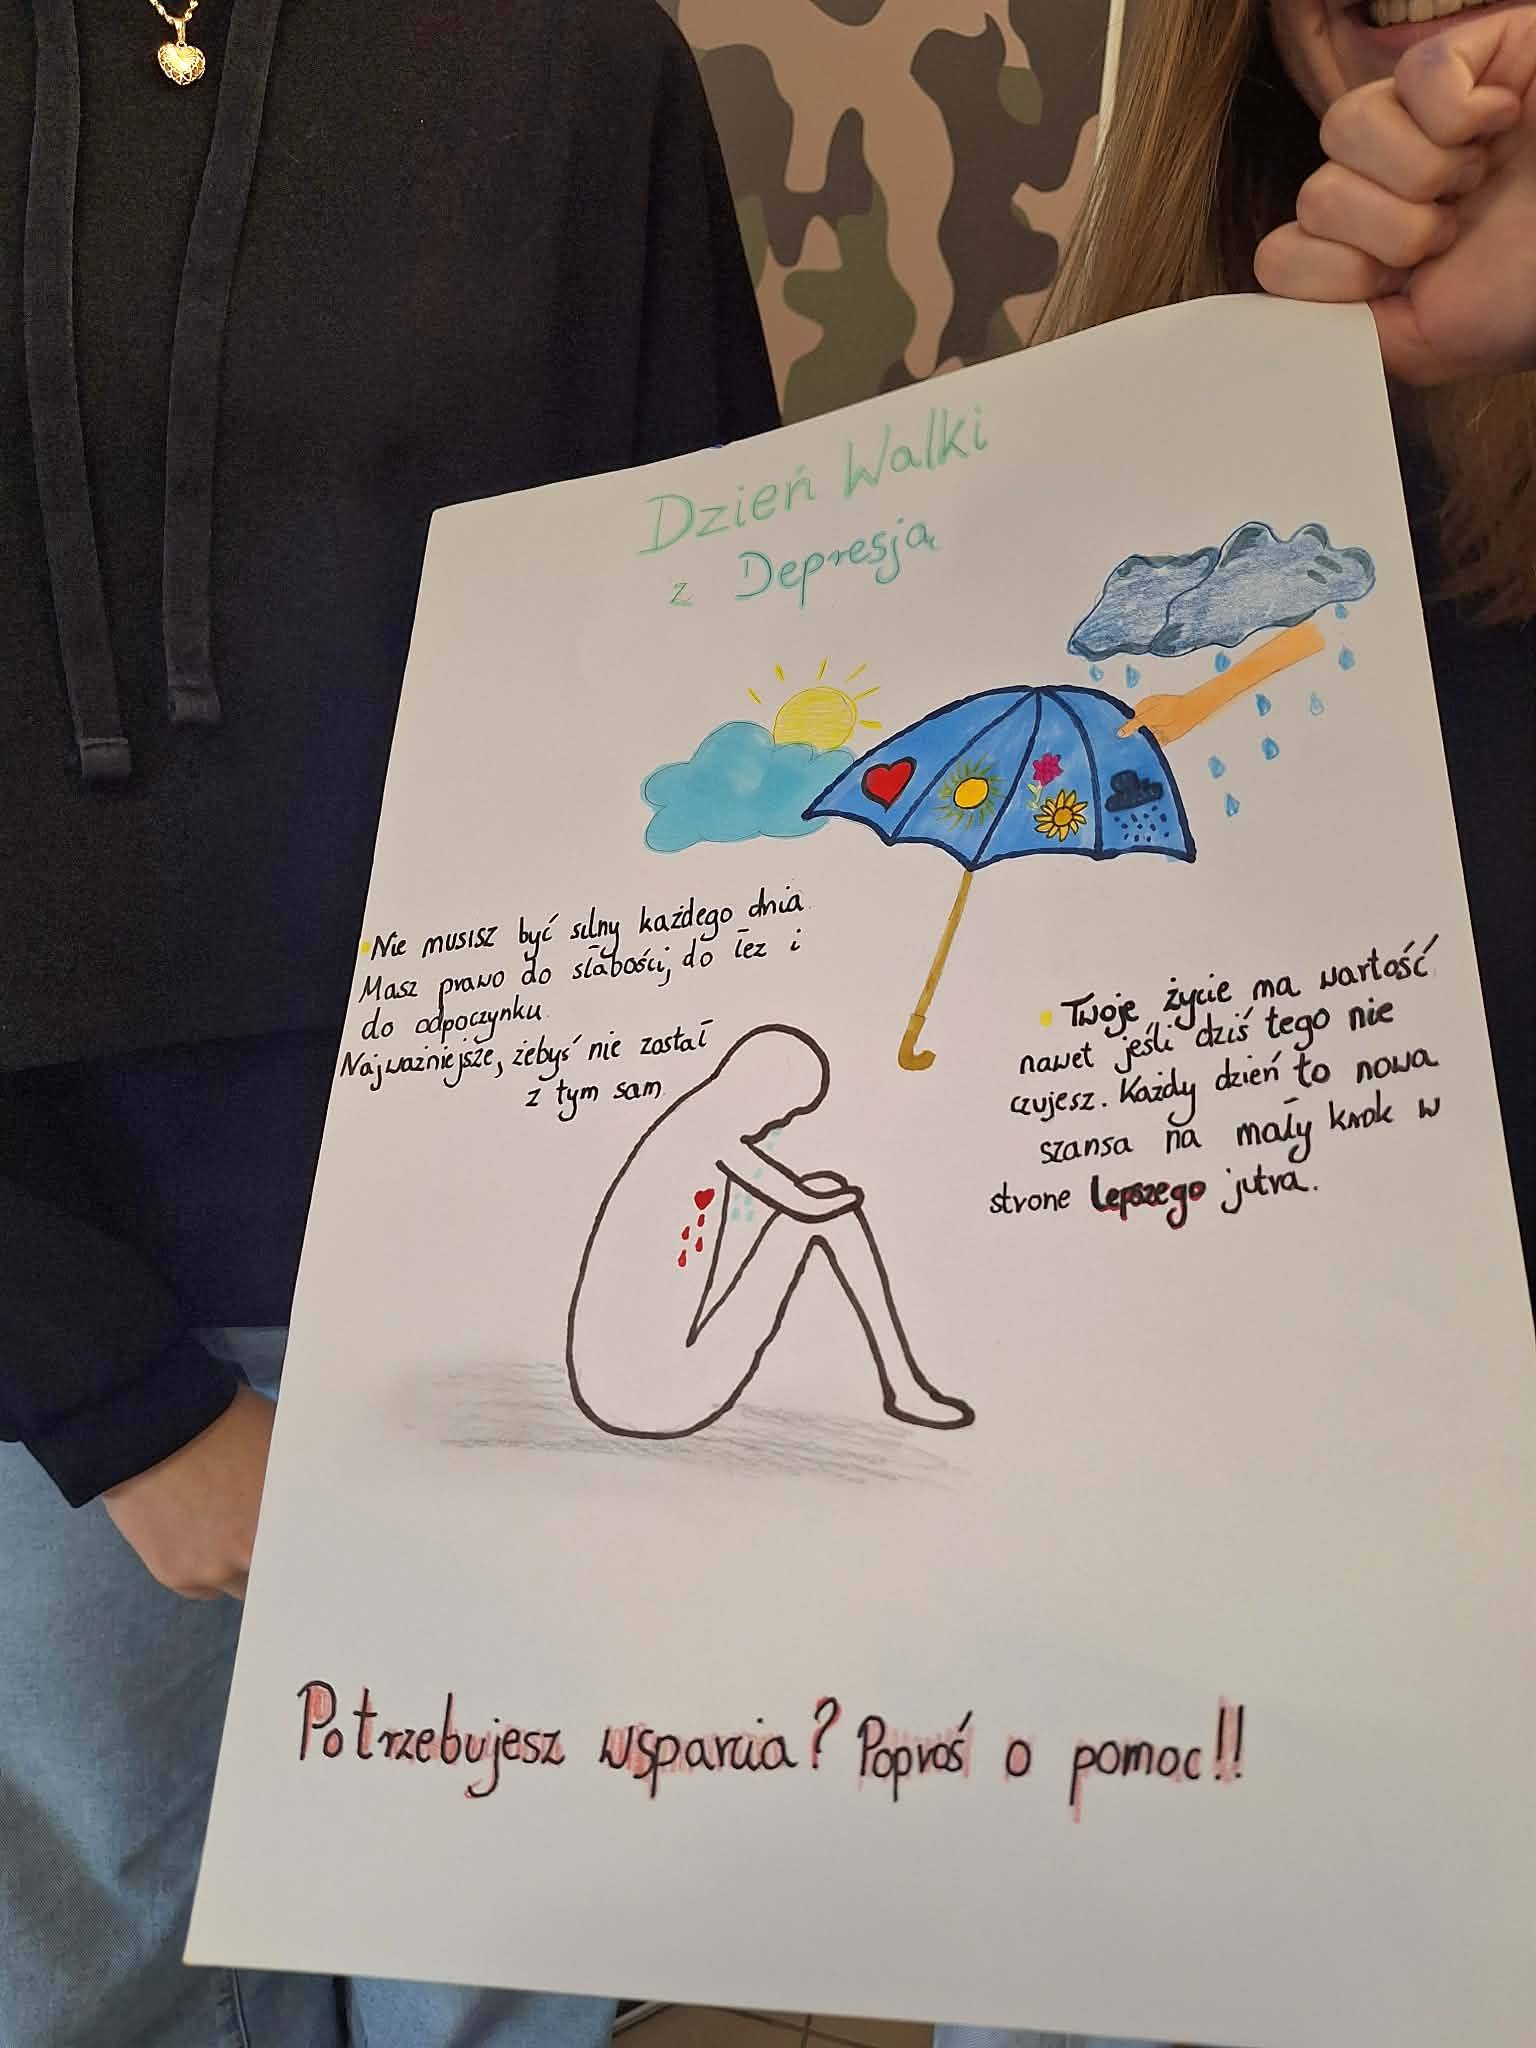 Dzień Walki
z Depresją
Nie musisz być silny każdego dnia
Masz prawo do słabości, do łez i
do odpoczynku.
Najważniejsze, żebyś nie został
z tym sam
Twoje życie ma wartość
nawet jeśli dziś tego nie
czujesz. Każdy dzień to nowa
szansa na mały krok w
strone lepszego jutra.
Potrzebujesz wsparcia? Poproś o pomoc!!